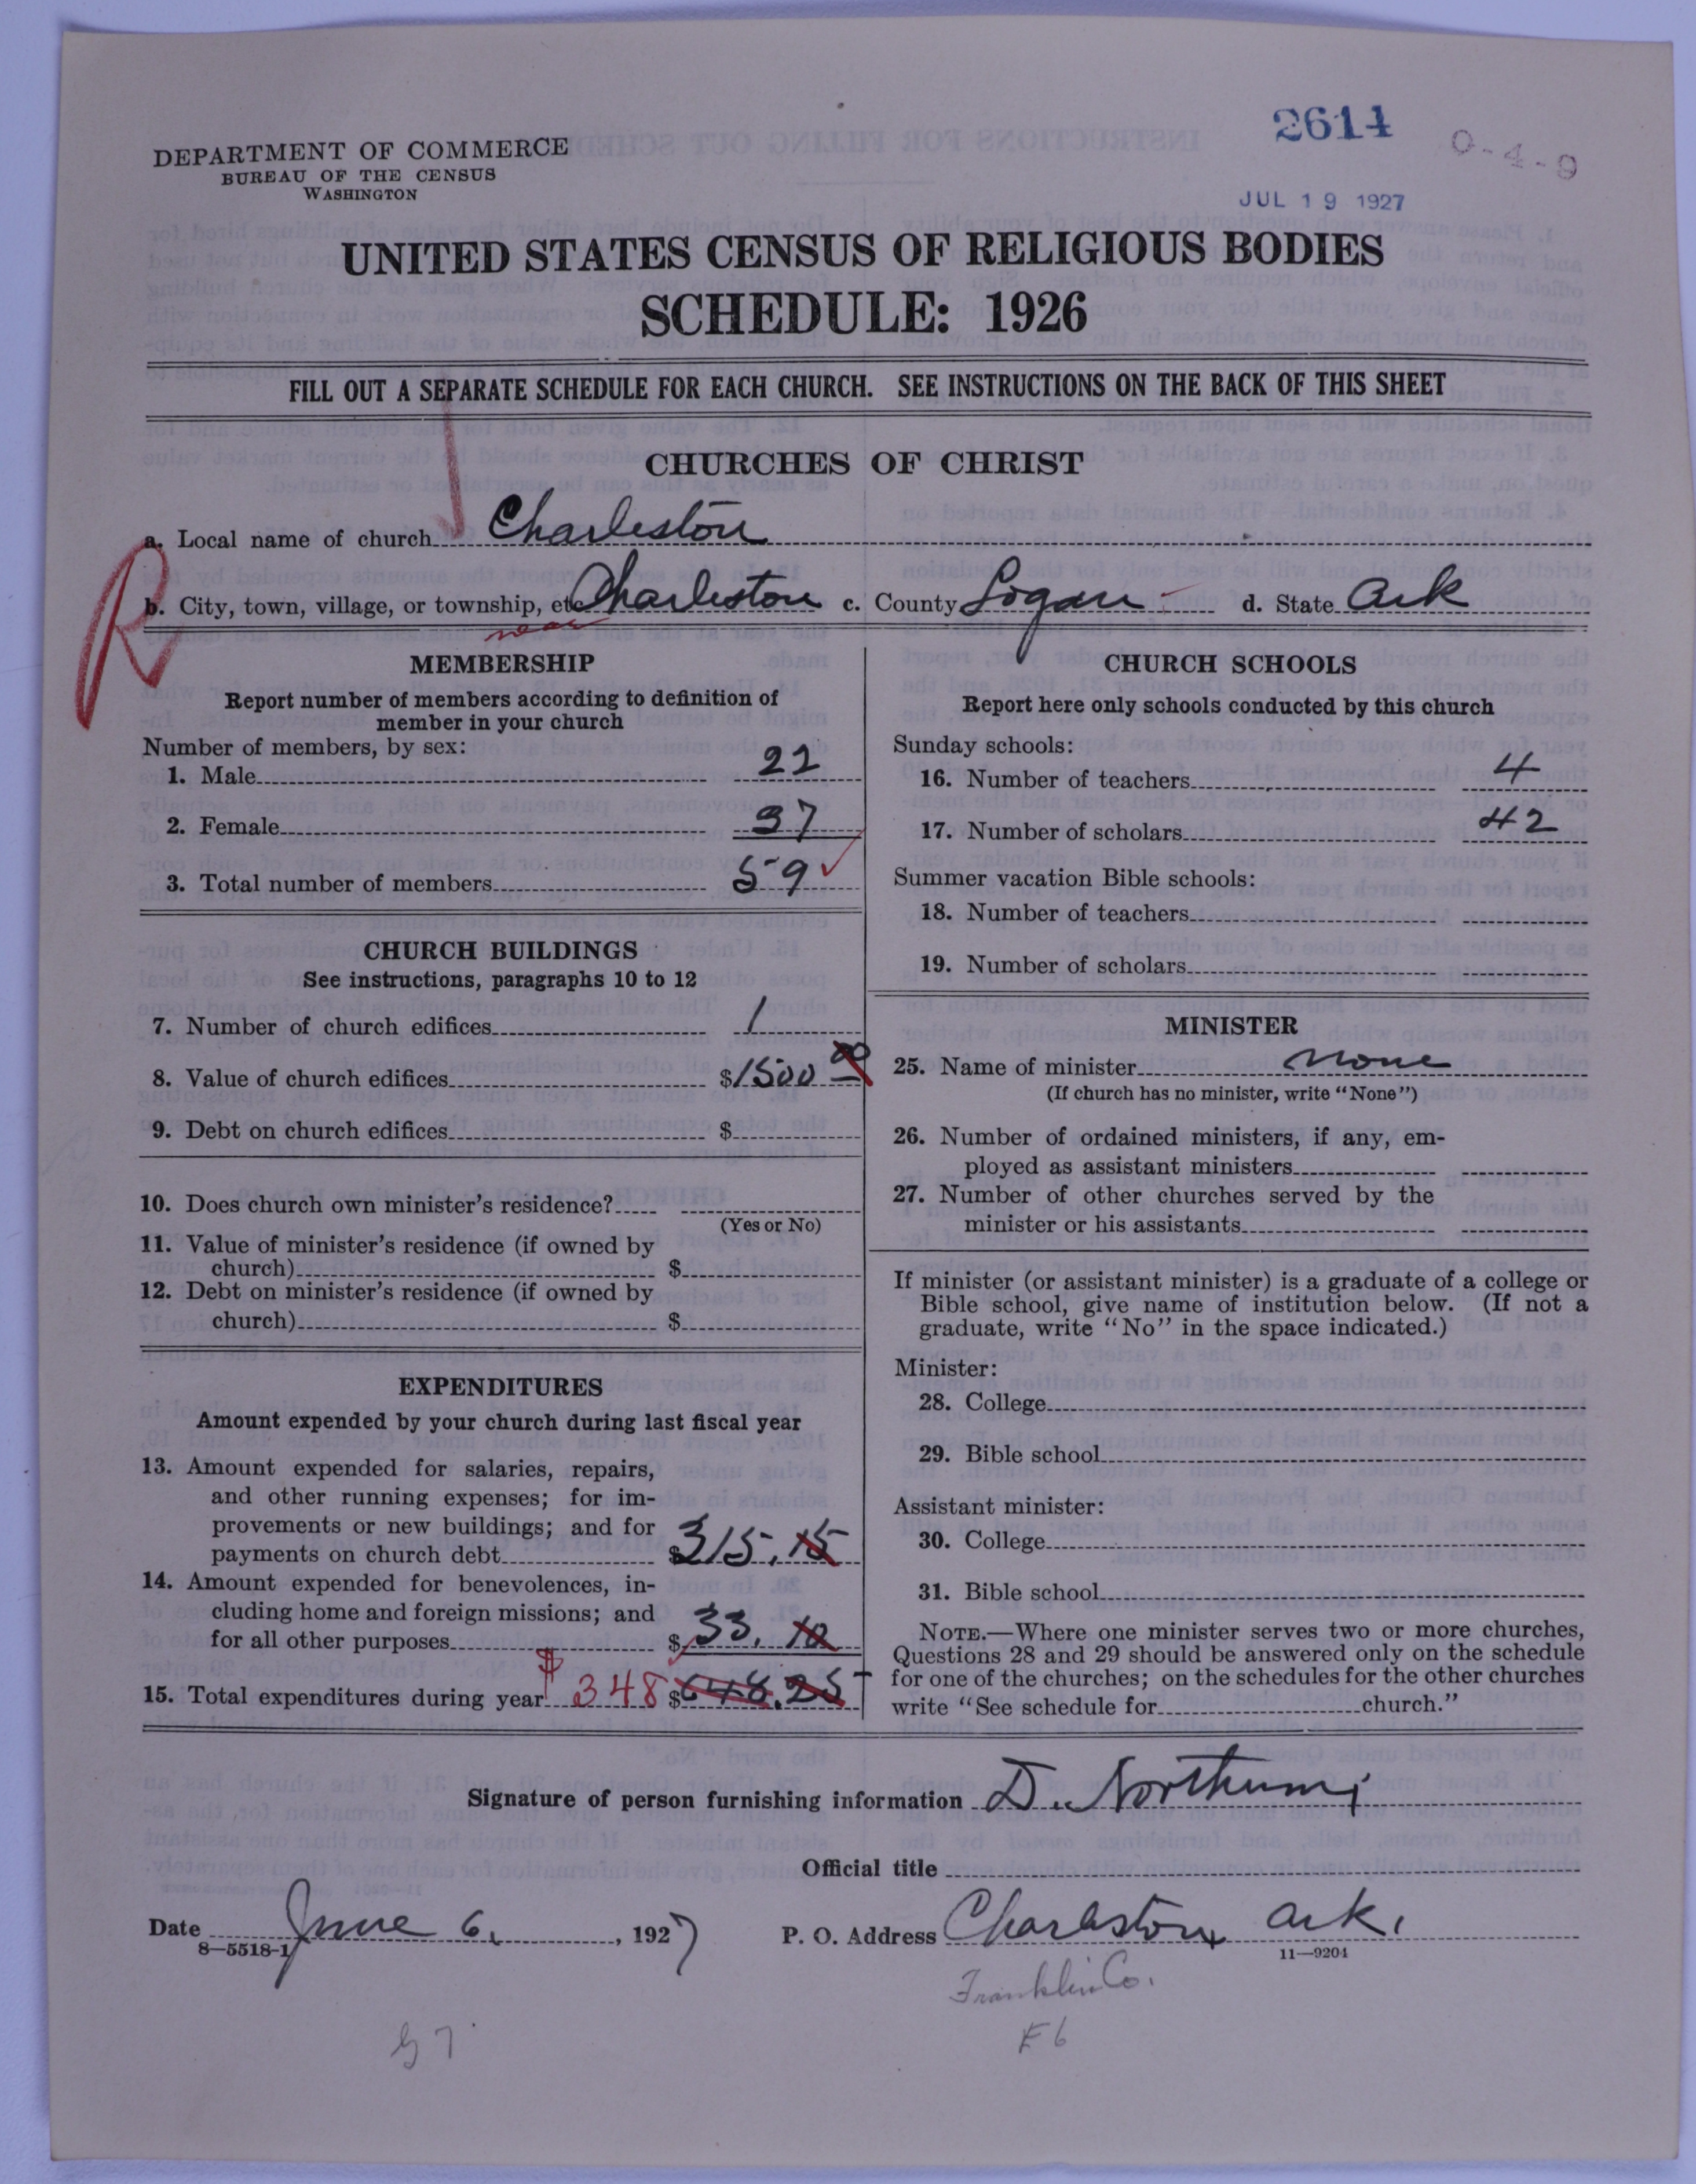 2614
0-4-9
DEPARTMENT OF COMMERCE
BUREAU OF THE CENSUS
WASHINGTON
JUL 19 1927
UNITED STATES CENSUS OF RELIGIOUS BODIES
SCHEDULE: 1926
FILL OUT A SEPARATE SCHEDULE FOR EACH CHURCH. SEE INSTRUCTIONS ON THE BACK OF THIS SHEET
CHURCHES OF CHRIST
a. Local name of church Charleston
R
b. City, town, village, or township, etc Charleston c. County Logan d. State Ark
near
MEMBERSHIP
Report number of members according to definition of
member in your church
Number of members, by sex:
1. Male 22
2. Female 37
3. Total number of members 59
CHURCH BUILDINGS
See instructions, paragraphs 10 to 12
7. Number of church edifices 1
8. Value of church edifices $1500 00
9. Debt on church edifices $
10. Does church own minister's residence?
(Yes or No)
11. Value of minister's residence (if owned by
church) $
12. Debt on minister's residence (if owned by
church) $
EXPENDITURES
Amount expended by your church during last fiscal year
13. Amount expended for salaries, repairs,
and other running expenses; for im-
provements or new buildings; and for
payments on church debt $315.15
14. Amount expended for benevolences, in-
cluding home and foreign missions; and
for all other purposes $33.10
15. Total expenditures during year $348 $648.25
CHURCH SCHOOLS
Report here only schools conducted by this church
Sunday schools:
16. Number of teachers 4
17. Number of scholars 42
Summer vacation Bible schools:
18. Number of teachers
19. Number of scholars
MINISTER
25. Name of minister none
(If church has no minister, write "None")
26. Number of ordained ministers, if any, em-
ployed as assistant ministers
27. Number of other churches served by the
minister or his assistants
If minister (or assistant minister) is a graduate of a college or
Bible school, give name of institution below. (If not a
graduate, write "No" in the space indicated.)
Minister:
28. College
29. Bible school
Assistant minister:
30. College
31. Bible school
NOTE.—Where one minister serves two or more churches,
Questions 28 and 29 should be answered only on the schedule
for one of the churches; on the schedules for the other churches
write "See schedule for church."
Signature of person furnishing information D. Northum
Official title
Date June 6, 1927 P. O. Address Charleston Ark.
8—5518-1 11—9204
Franklin Co.
E6